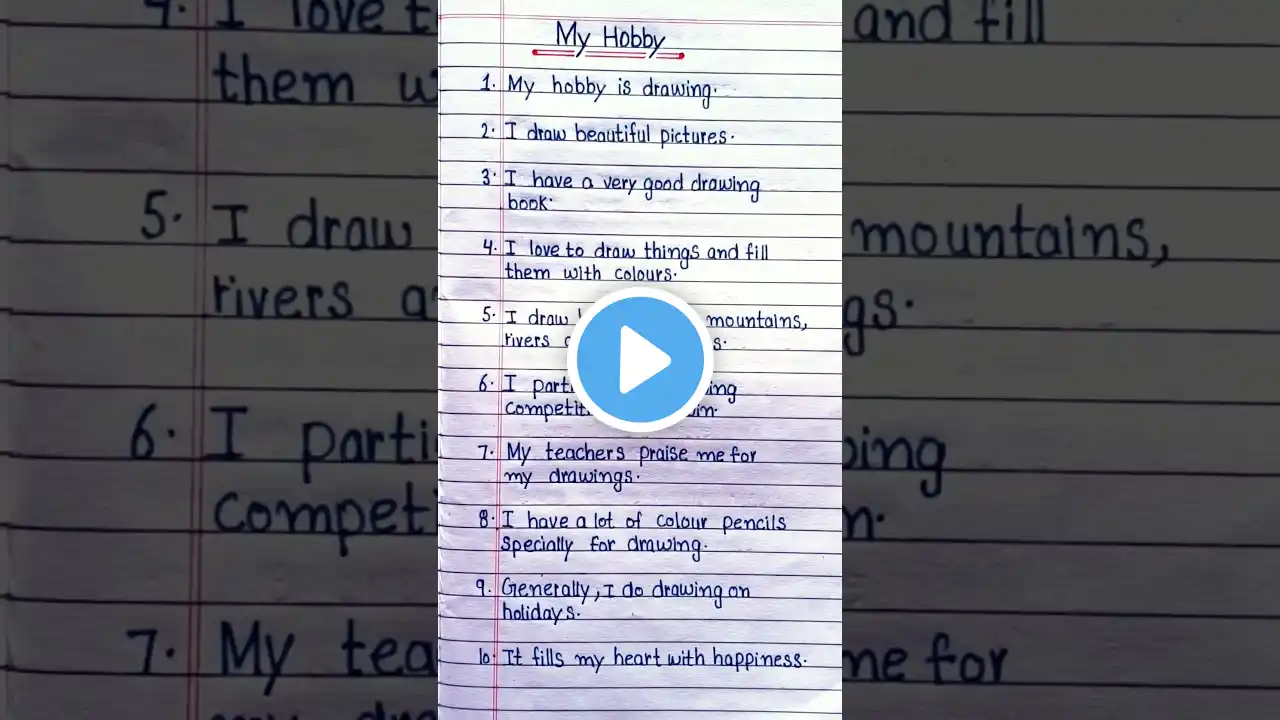 My Hobby
1. My hobby is drawing.
2. I draw beautiful pictures.
3. I have a very good drawing
book.
4. I love to draw things and fill
them with colours.
5. I draw mountains,
rivers
6. I
7. My teachers praise me for
my drawings.
8. I have a lot of colour pencils
specially for drawing.
9. Generally, I do drawing on
holidays.
10. It fills my heart with happiness.